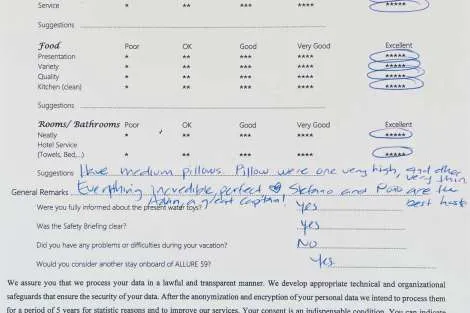 Service * ** *** **** *****
Suggestions
Food Poor OK Good Very Good Excellent
Presentation * ** *** **** *****
Variety * ** *** **** *****
Quality * ** *** **** *****
Kitchen (clean) * ** *** **** *****
Suggestions
Rooms/ Bathrooms Poor OK Good Very Good Excellent
Neatly * ** *** **** *****
Hotel Service
(Towels, Bed,...) * ** *** **** *****
Suggestions Have medium pillows. Pillow were one very high, and other very thin
General Remarks Everything incredible, perfect Stefano and are the best hosts
a great captain!
Were you fully informed about the present water toys? Yes
Was the Safety Briefing clear? Yes
Did you have any problems or difficulties during your vacation? No
Would you consider another stay onboard of ALLURE 59? Yes
We assure you that we process your data in a lawful and transparent manner. We develop appropriate technical and organizational
safeguards that ensure the security of your data. After the anonymization and encryption of your personal data we intend to process them
for a period of 5 years for statistic reasons and to improve our services. Your consent is an indispensable condition. You can indicate